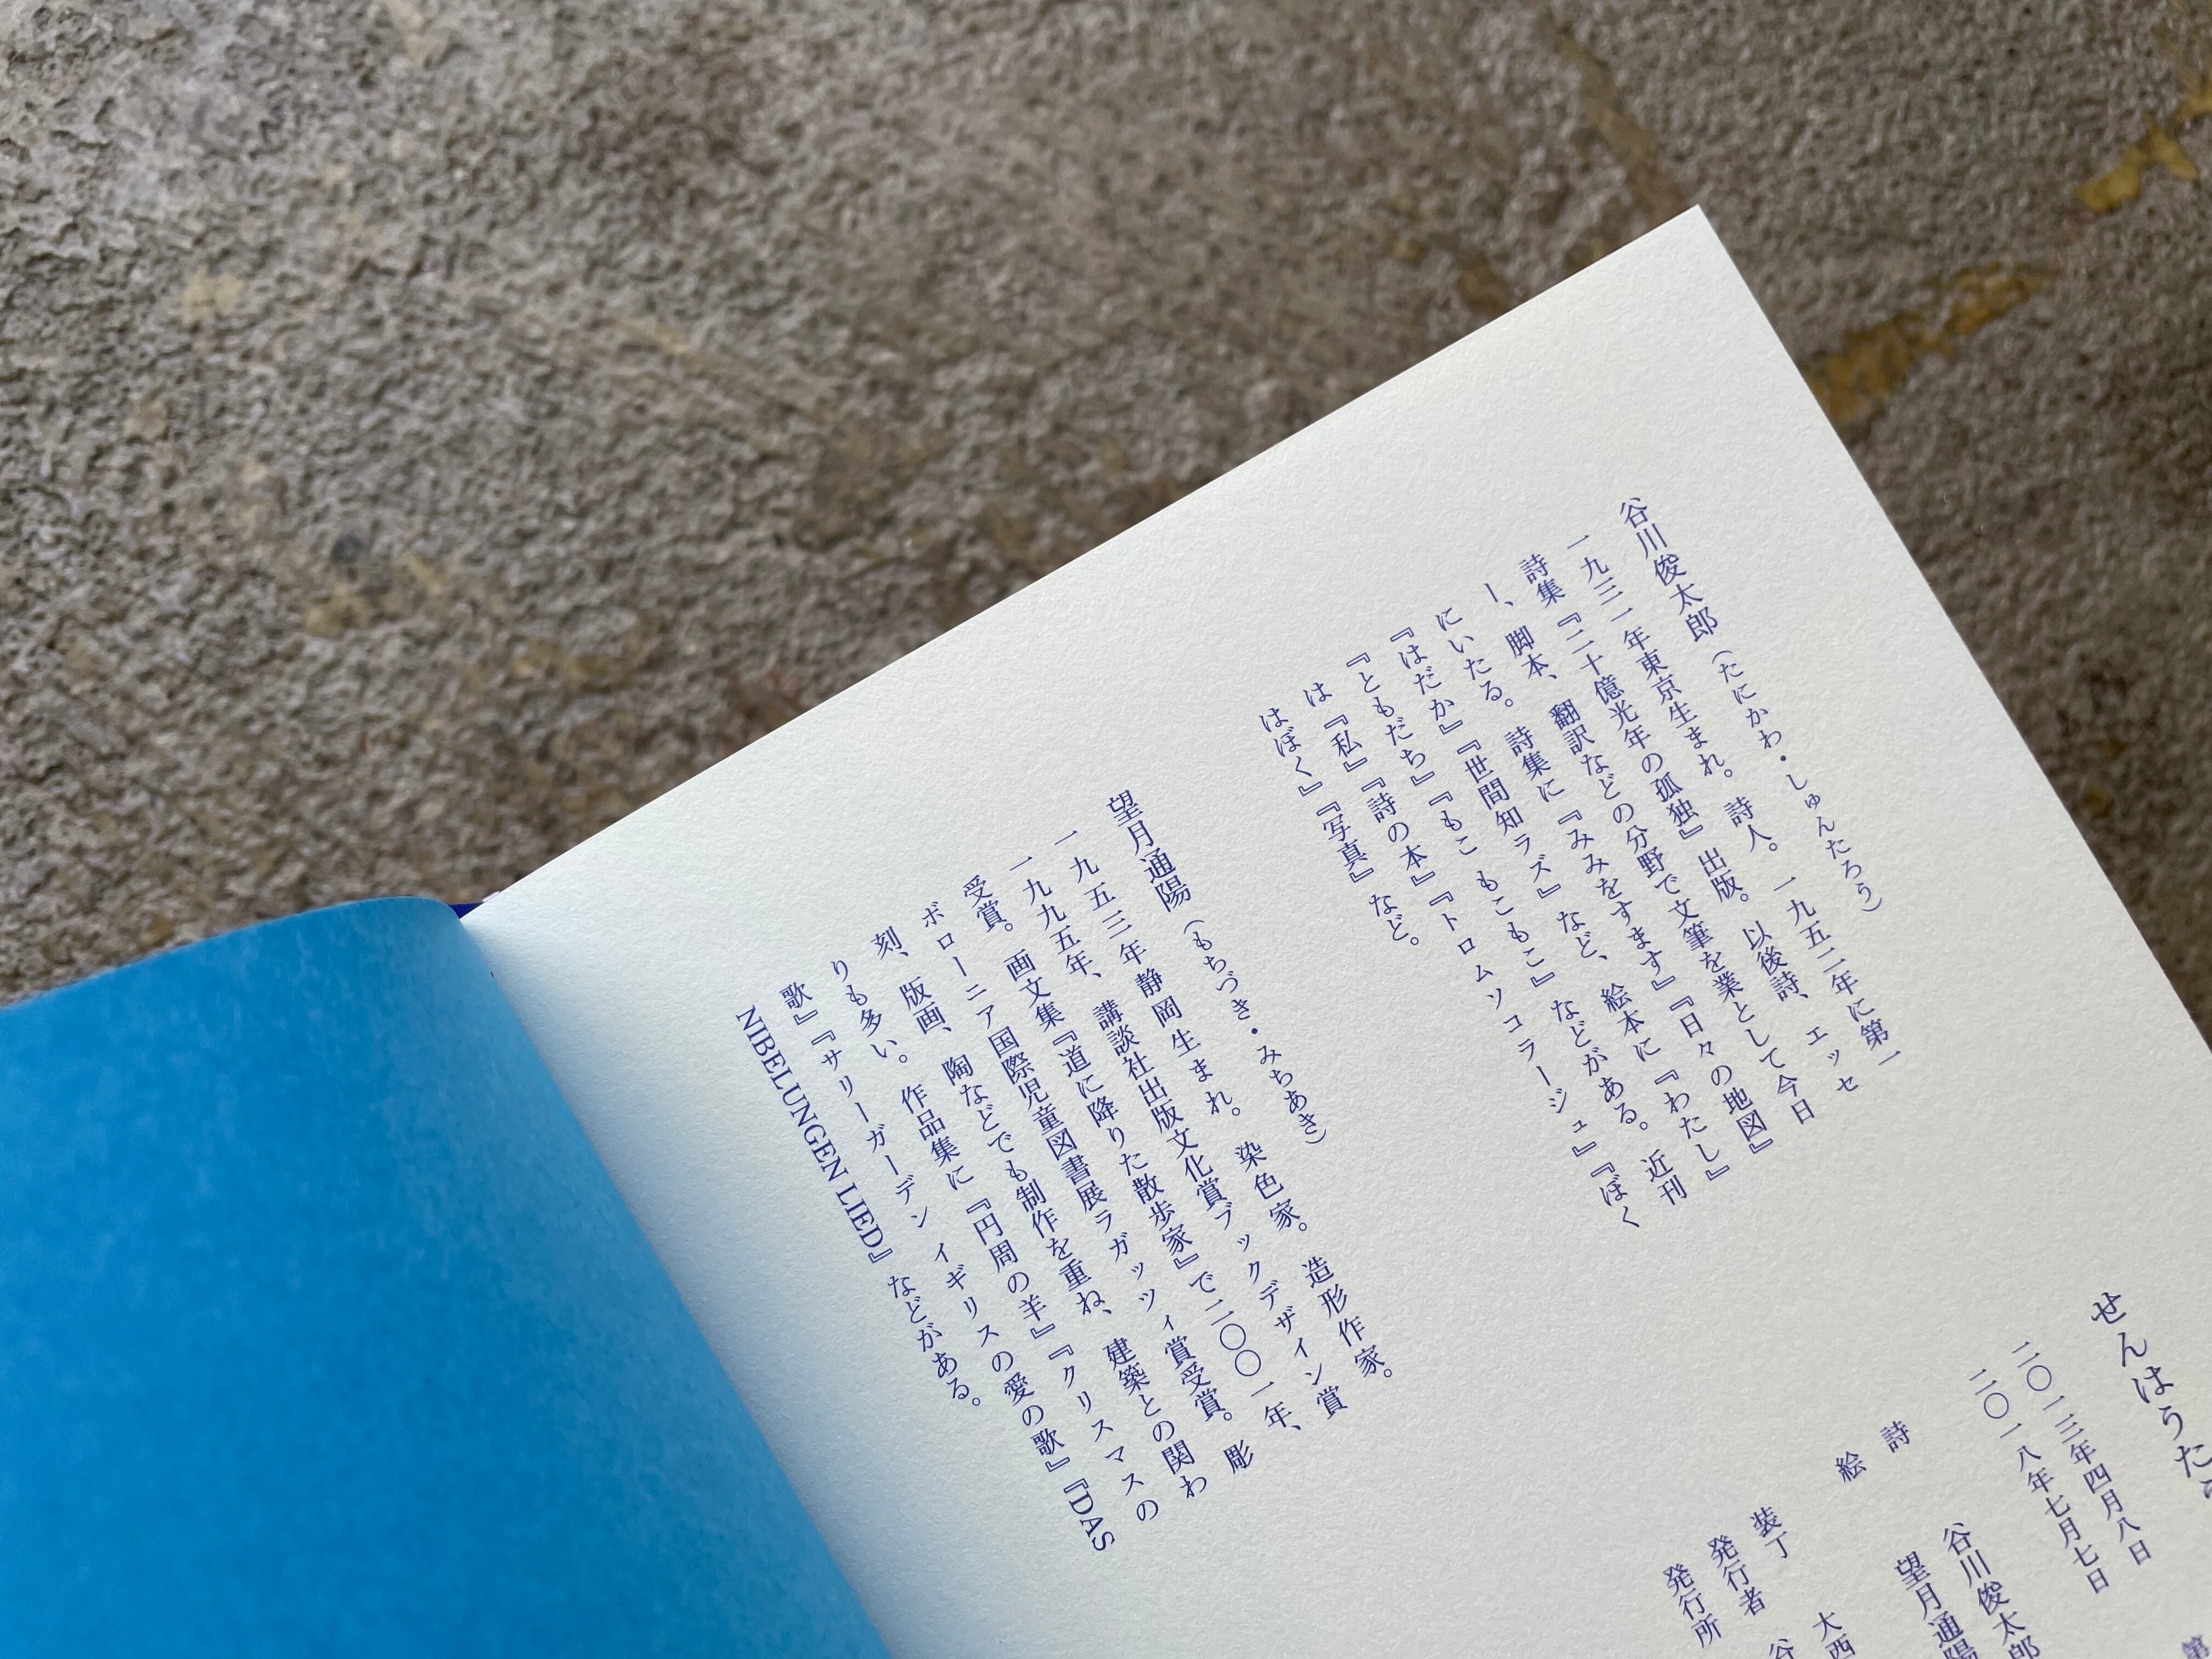 谷川俊太郎（たにかわ・しゅんたろう）
一九三一年東京生まれ。詩人。一九五二年に第一
詩集『二十億光年の孤独』出版。以後詩、エッセ
ー、脚本、翻訳などの分野で文筆を業として今日
にいたる。詩集に『みみをすます』『日々の地図』
『はだか』『世間知ラズ』など、絵本に『わたし』
『ともだち』『もこ もこもこ』などがある。近刊
は『私』『詩の本』『トロムソコラージュ』『ぼく
はぼく』『写真』など。
望月通陽（もちづき・みちあき）
一九五三年静岡生まれ。染色家。造形作家。
一九九五年、講談社出版文化賞ブックデザイン賞
受賞。画文集『道に降りた散歩家』で二〇〇一年、
ボローニア国際児童図書展ラガッツィ賞受賞。彫
刻、版画、陶などでも制作を重ね、建築との関わ
りも多い。作品集に『円周の羊』『クリスマスの
歌』『サリーガーデン イギリスの愛の歌』『DAS
NIBELUNGEN LIED』などがある。
せんはうたう
二〇一三年四月八日
二〇一八年七月七日 第
詩 谷川俊太郎
絵 望月通陽
装丁 大西
発行者 谷
発行所